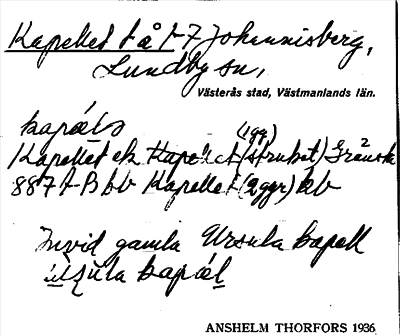 Kapellet t å t 7 Johannisberg,
Lundby sn,
Västerås stad, Västmanlands län.
kapäls
(1gg)
Kapellet ek Kapellet (struket)
887 A-B bb Kapellet (2ggr) äb
Invid gamla Ursula kapell
kapäl
ANSHELM THORFORS 1936